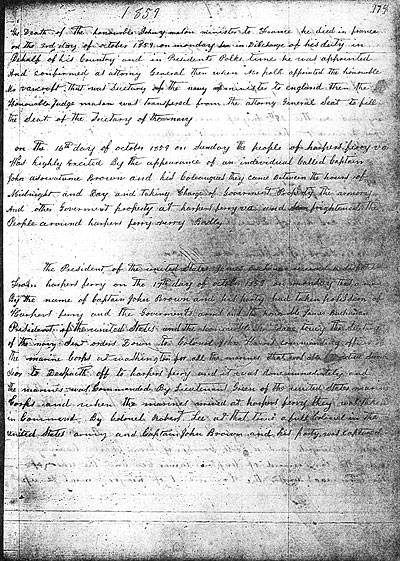 1859
173
The Death of the honourable John y mason minister to France he died in france
on the 3rd day of october 1859 on monday in Discharge of his duty in
Behalf of his Country and in President Polks time he was appointed
And confirmed as attorney General then when Mr polk appointed the honourable
Mr bancroft, that was Secretary of the navy minister to england then the
Honourable Judge mason was transfered from the attorny General Seat to fill
the Seat of the Secretary of the navy
on the 16th day of october 1859 on Sunday the people of harpers ferry va
Was highly Excited By the appearance of an individual Called Captain
John Brown and his Colleagues they came Between the hours of
Midnight and Day and taking Charge of Government Property the armory
And other Goverment property at harpers ferry va and frightened the
People around harpers ferry very Badly
the President of the united States James Buchanan received a
from harpers ferry on the 17th day of october 1859 on monday that a man
By the name of Captain John Brown and his party had taken possession of
Harpers ferry and the Governments and the honorable James Buchanan
President of the united States and the honourable Isaac toucey the Secretary
of the navy Sent orders Down to Colonel John Harris commanding of
the marine Corps at washington for all the marines that
to Despatch off to harpers ferry and it was Done immediately and
the marines was Commanded By Lieutenant Green of the united States marine
Corps and when the marines arrived at harpers ferry they was taken
in Command By Colonel Robert Lee at that time a full Colonel in the
united States army and Captain John Brown and his party was captured